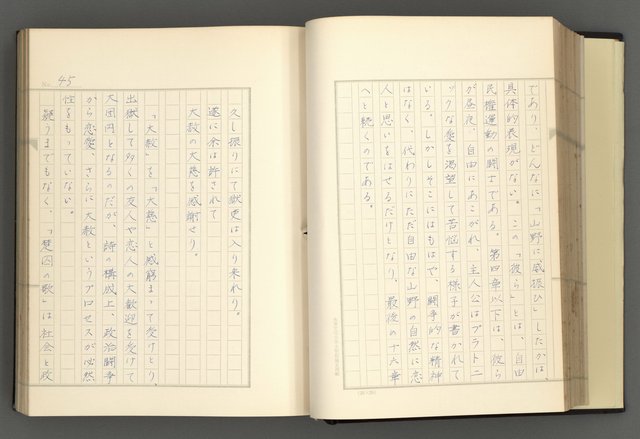 であり、どんなに「山野に威振ひ」したかは、
具体的表現がない。この「彼ら」とは、自由
民権運動の闘士である。第四章以下は、彼ら
が昼夜、自由にあこがれ、主人公はプラトニ
ックな愛を渇望して苦悩する様子が書かれて
いる。しかしそこにはもはや、闘争的な精神
はなく、代わりにただ自由な山野の自然に恋
人と思いをはせるだけとなり、最後の十六章
へと続くのである。
No. 45
久し振りにて獄吏は入り来れり。
遂に余は許されて
大赦の大慈を感謝せり。
「大赦」を「大慈」と感窮まって受けとり、
出獄して多くの友人や恋人の大歓迎を受けて
大団円となるのだが、詩の構成上、政治闘争
から恋愛、さらに大赦というプロセスが必然
性をもっていない。
疑うまでもなく、「楚囚の歌」は社会と政